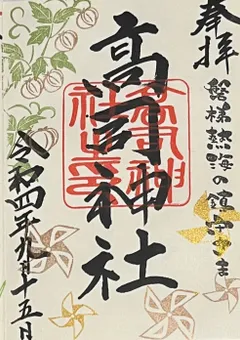 奉拝
磐梯熱海の鎮守さま
高司神社
令和四年九月十五日